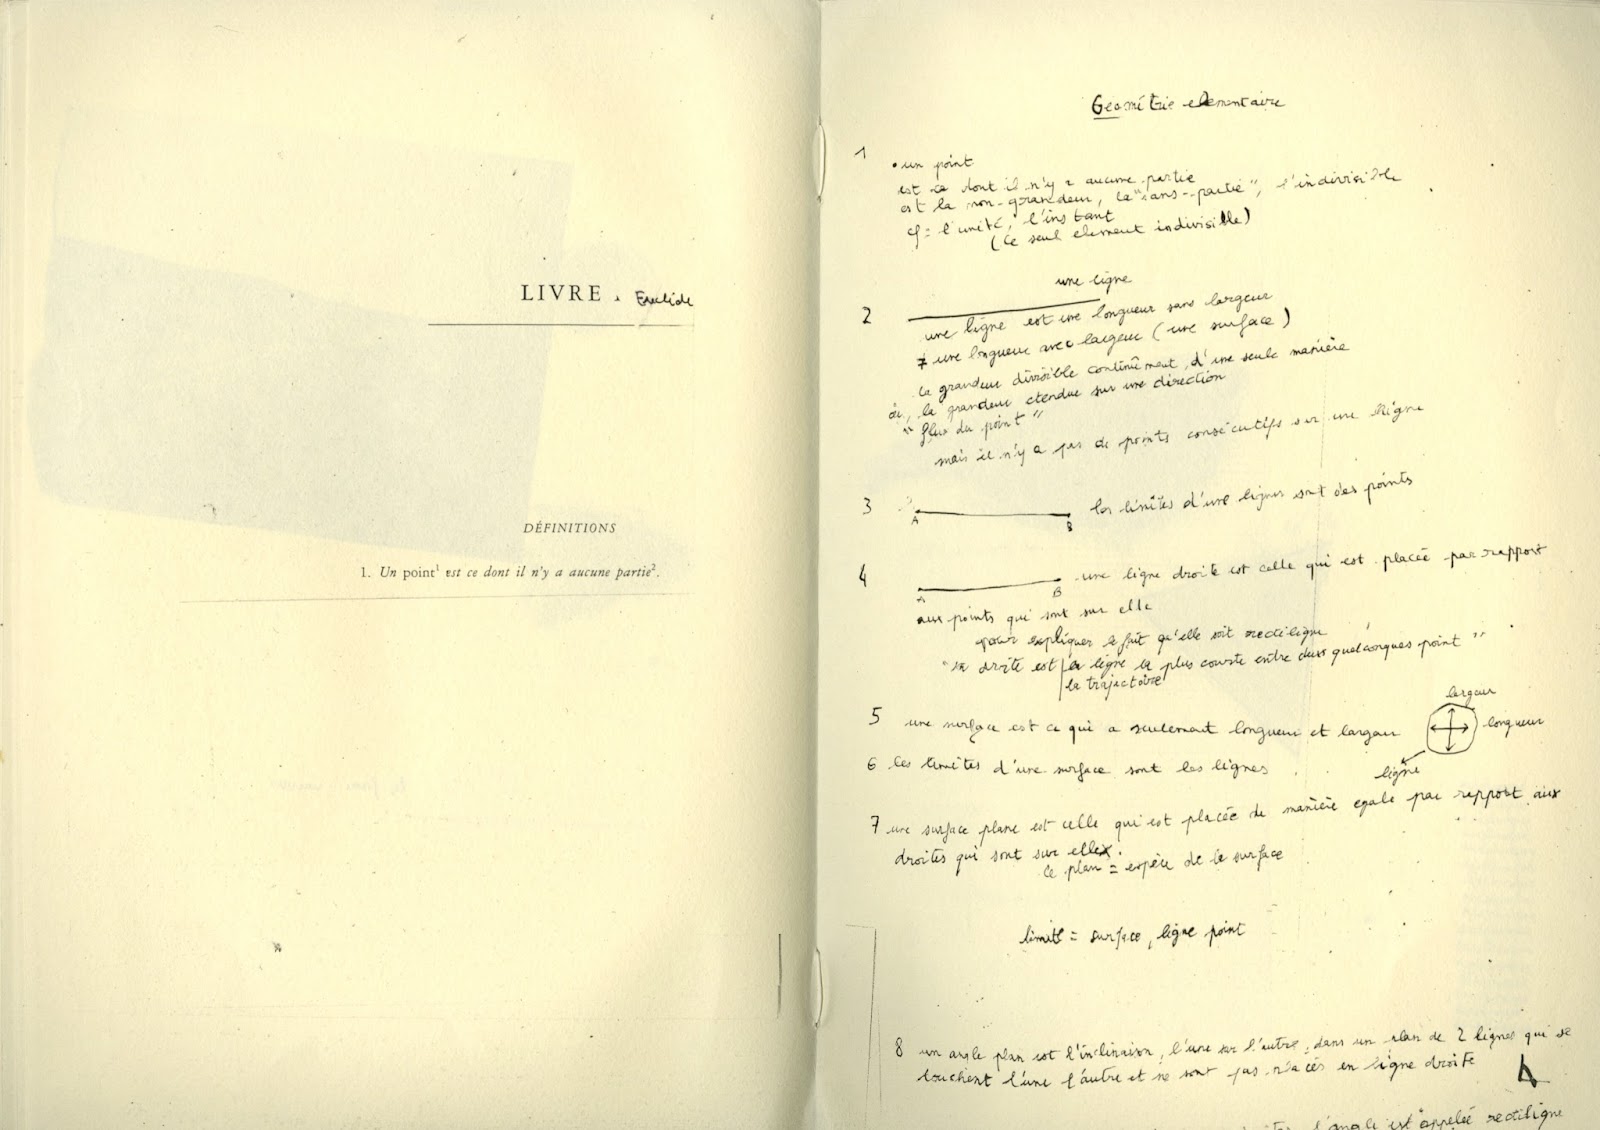 LIVRE 1 Euclide
DÉFINITIONS
1. Un point¹ est ce dont il n'y a aucune partie².
Geométrie elementaire
1 • un point
est ce dont il n'y a aucune partie
est la non-grandeur, le "sans-partie", l'indivisible
cf = l'unité, l'instant
(le seul element indivisible)
une ligne
2
une ligne est une longueur sans largeur
≠ une longueur avec largeur (une surface)
la grandeur divisible continûment, d'une seule manière
ou, la grandeur etendue sur une direction
"flux du point"
mais il n'y a pas de points consécutifs sur une ligne
3 A B les limites d'une lignes sont des points
4 A B une ligne droite est celle qui est placée par rapport
aux points qui sont sur elle
pour expliquer le fait qu'elle soit rectiligne
"la droite est la ligne la plus courte entre deux quelconques point"
la trajectoire
largeur
5 une surface est ce qui a seulement longueur et largeur
longueur
ligne
6 les limites d'une surface sont les lignes
7 une surface plane est celle qui est placée de manière egale par rapport aux
droites qui sont sur elle.
le plan = espèce de la surface
limite = surface, ligne point
8 un angle plan est l'inclinaison, l'une sur l'autre, dans un plan de 2 lignes qui se
touchent l'une l'autre et ne sont pas placés en ligne droite
l'angle est appelée rectiligne